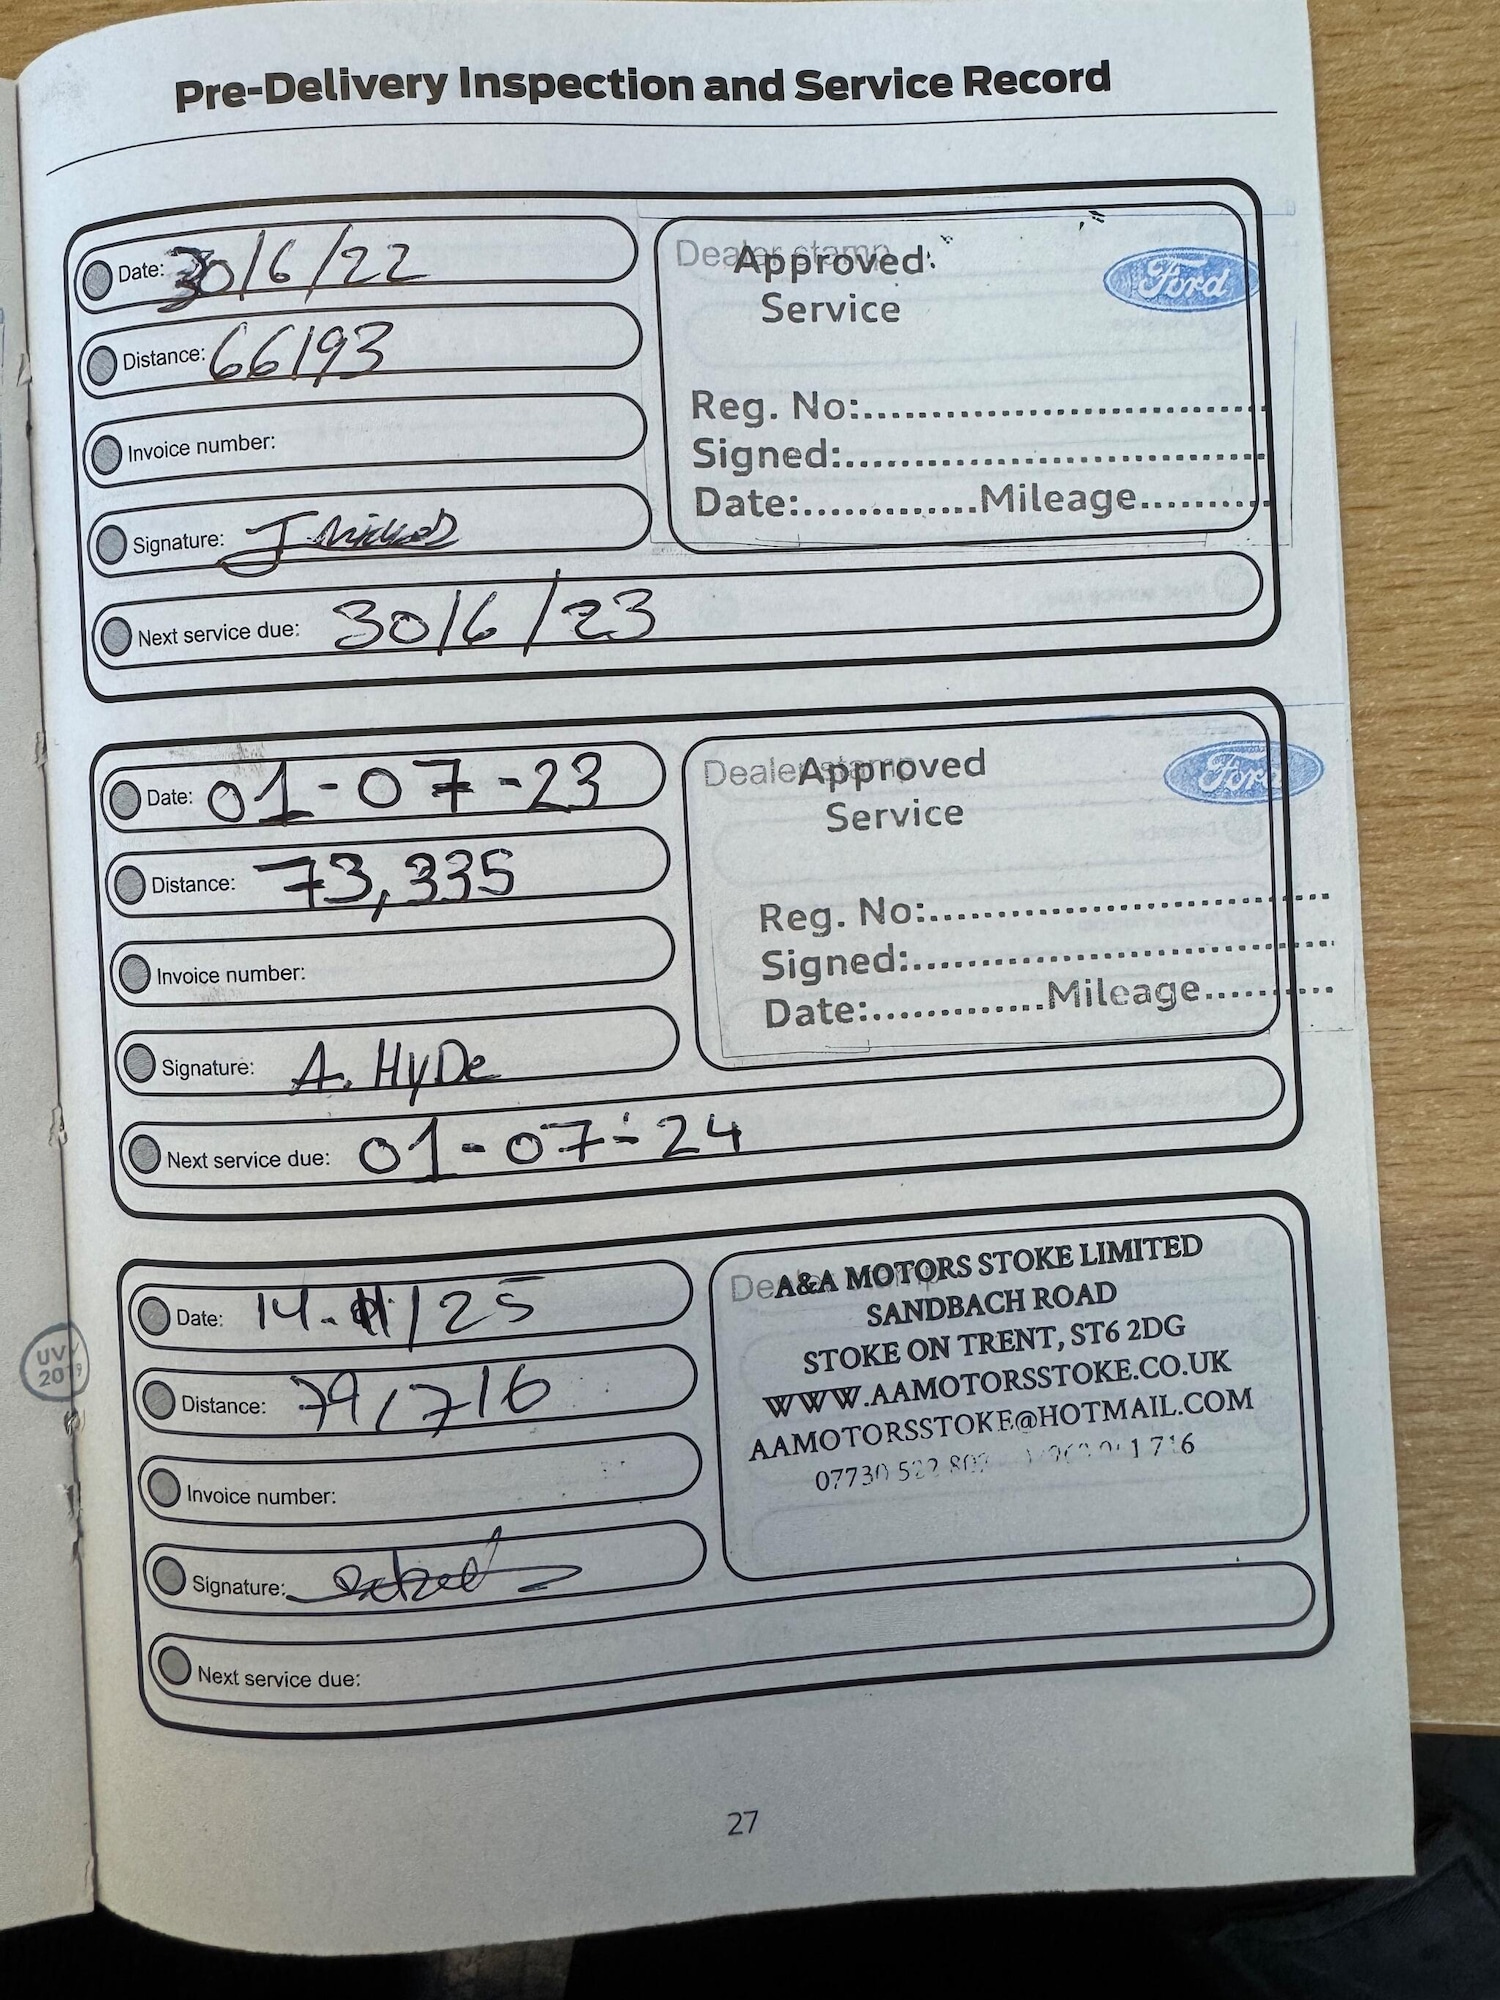 Pre-Delivery Inspection and Service Record
Date: 30/6/22
Distance: 66193
Invoice number:
Signature: J
Next service due: 30/6/23
Dealer stamp
Approved
Service
Ford
Reg. No:..............................
Signed:..............................
Date:.............Mileage..........
Date: 01-07-23
Distance: 73,335
Invoice number:
Signature: A. HyDe
Next service due: 01-07-24
Dealer stamp
Approved
Service
Ford
Reg. No:..............................
Signed:..............................
Date:.............Mileage..........
Date: 14.11/25
Distance: 79,716
Invoice number:
Signature:
Next service due:
Dealer stamp
A&A MOTORS STOKE LIMITED
SANDBACH ROAD
STOKE ON TRENT, ST6 2DG
WWW.AAMOTORSSTOKE.CO.UK
AAMOTORSSTOKE@HOTMAIL.COM
07730 522 1 716
UV
2019
27